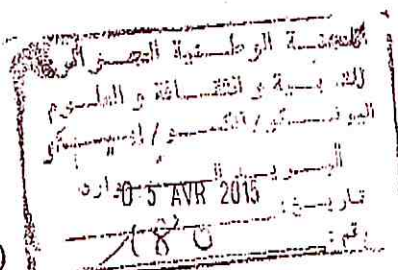 اللجنة الوطنية الجزائرية
للتربية والثقافة والعلوم
اليونسكو/الألكسو/إيسيسكو
البريد الوارد
05 AVR 2015
تاريخ:
رقم: